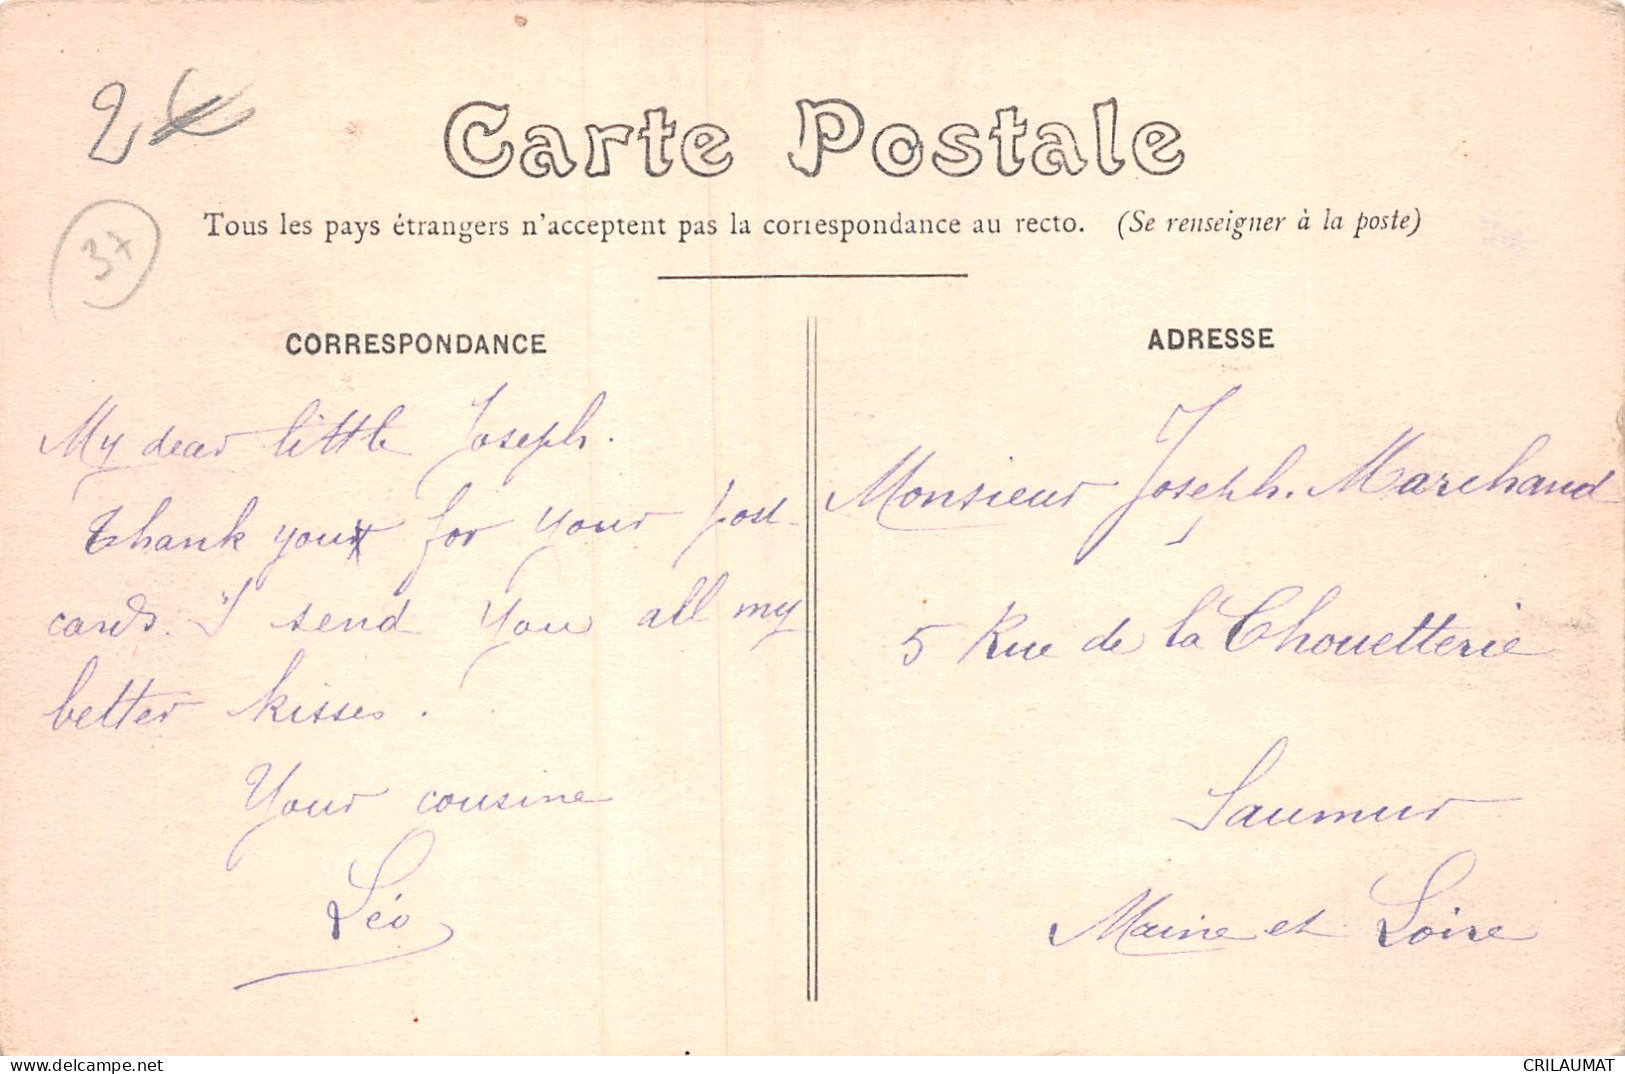 2€
37
Carte Postale
Tous les pays étrangers n'acceptent pas la correspondance au recto. (Se renseigner à la poste)
CORRESPONDANCE
My dear little Joseph.
Thank you for your post
cards. I send you all my
better kisses.
Your cousine
Léo
ADRESSE
Monsieur Joseph. Marchand
5 Rue de la Chouetterie
Saumur
Maine et Loire
www.delcampe.net
CRILAUMAT